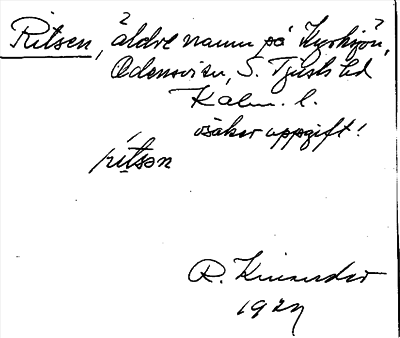 Ritsen, äldre namn på Kyrksjön,
Odensvi sn, S. Tjusts hd
Kalm. l.
osäker uppgift!
ritsən
R.